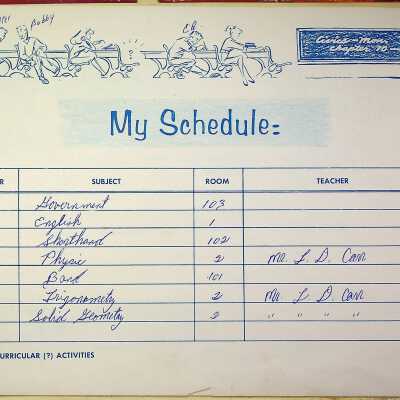 Bobby
chapter 10
My Schedule:
R SUBJECT ROOM TEACHER
Government 103
English 1
Shorthand 102
Physic 2 Mr. L. D. Carr
Band 101
Trigonometry 2 Mr. L. D. Carr
Solid Geometry 2 " " " "
URRICULAR (?) ACTIVITIES